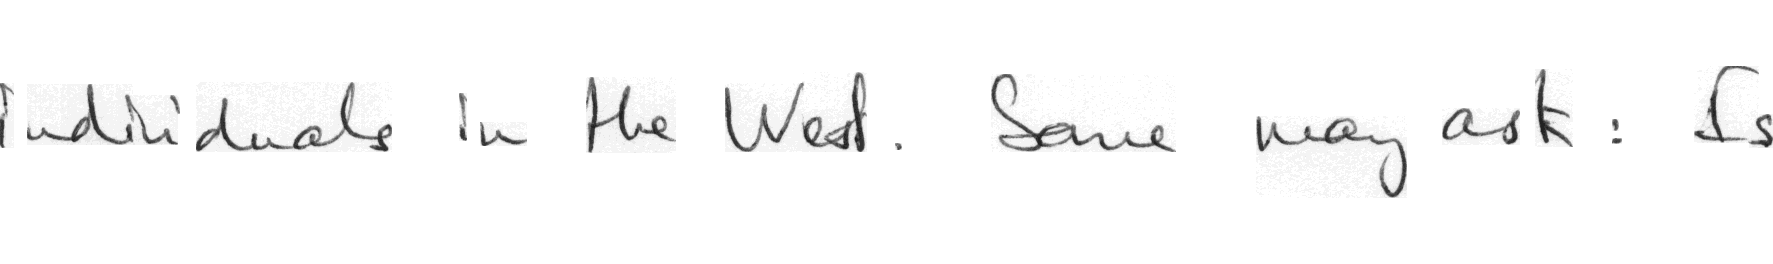 individuals in the West. Some may ask: Is